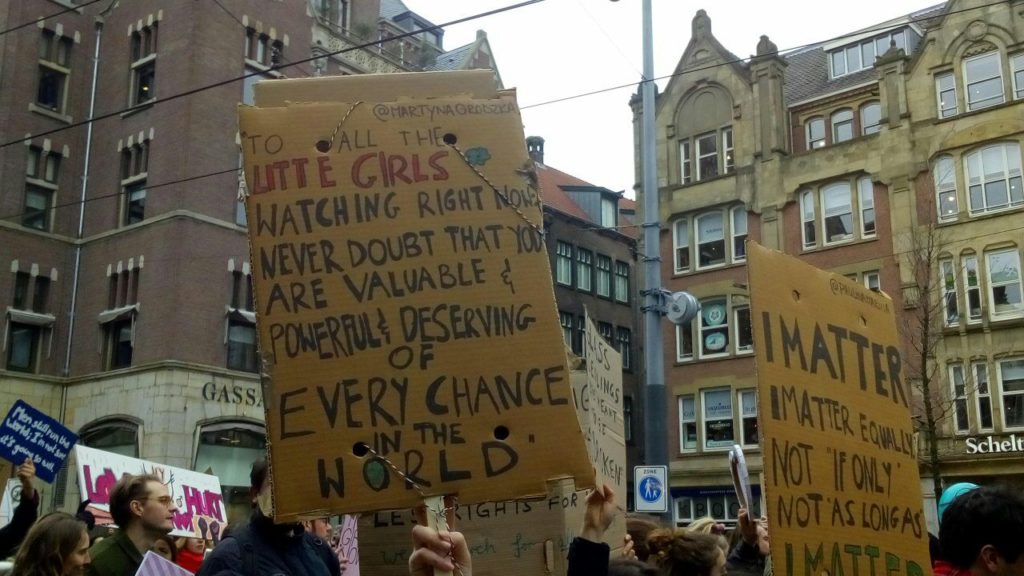 @MARTYNAGROSZKO
"TO ALL THE
LITTE GIRLS
WATCHING RIGHT NOW:
NEVER DOUBT THAT YOU
ARE VALUABLE &
POWERFUL & DESERVING
OF
EVERY CHANCE
IN THE
WORLD."
I MATTER
I MATTER EQUALLY
NOT "IF ONLY"
NOT "AS LONG AS"
I MATTER
Men still run the
world; I'm not sure
it's going so well.
HURT
GASSA
RIGHTS FOR
ZONE
Schelt